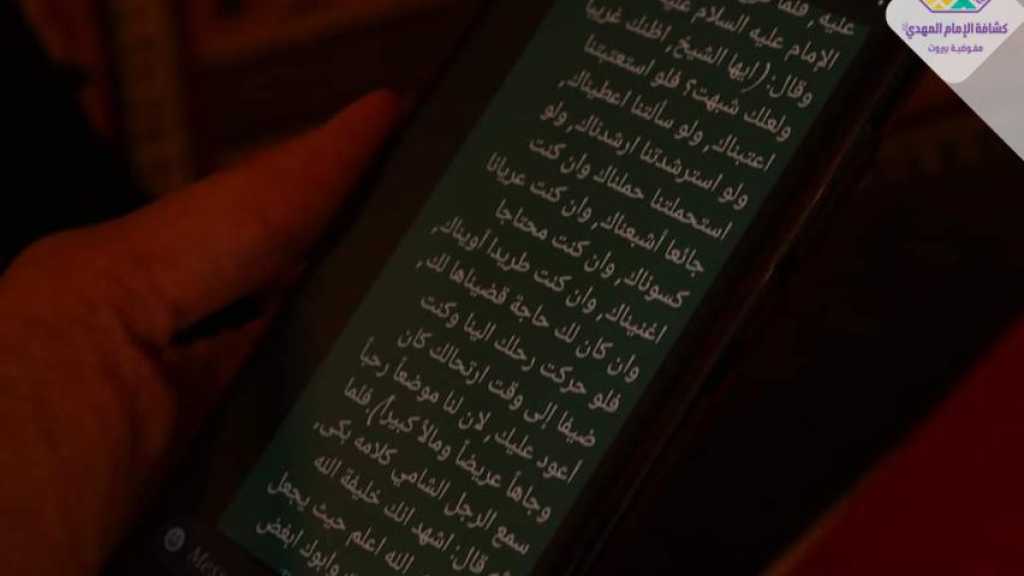 كشافة الإمام المهدي
مفوضية بيروت
عليه , فلما
الإمام عليه السلام عليه
وقال: (ايها الشيخ, اظنك غريبا
ولعلك شبهت؟ فلو استعتبتنا
اعتبناك, ولو سألتنا اعطيناك,
ولو استرشدتنا ارشدناك, ولو
استحملتنا حملناك وان كنت
جائعا أشبعناك, وان كنت عريانا
كسوناك, وان كنت محتاجا
اغنيناك, وان كنت طريدا آويناك,
وان كان لك حاجة قضيناها لك,
فلو حركت رحلك الينا وكنت
ضيفا إلى وقت ارتحالك كان
اعود عليك, لان لنا موضعاً رحباً
وجاهاً عريضاً ومالاً كبيرا).فلما
سمع الرجل الشامي كلامه بكى,
قال: اشهد انك خليفة الله
الله اعلم حيث يجعل
وابوك ابغض
Mess